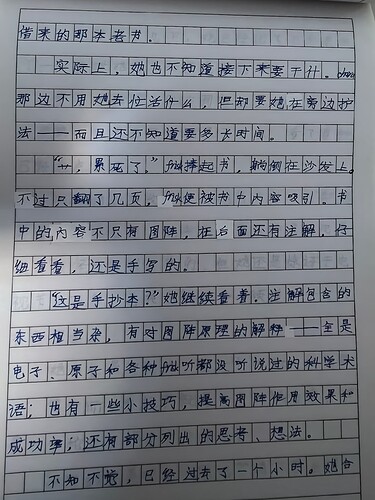 借来的那本老书。
实际上，她也不知道接下来要干什。
那边不用她去忙活什么，但却要她在旁边护
法——而且还不知道要多长时间。
“艹，累死了。”她捧起书，躺倒在沙发上。
不过只翻了几页，她便被书中内容吸引。书
中的内容不只有图阵，在后面还有注解，仔
细看看，还是手写的。
“这是手抄本？”她继续看着。注解包含的
东西相当杂，有对图阵原理的解释——全是
电子、原子和各种她听都没听说过的科学术
语；也有一些小技巧，提高图阵作用效果和
成功率；还有部分列出的思考、想法。
不知不觉，已经过去了一个小时。她合